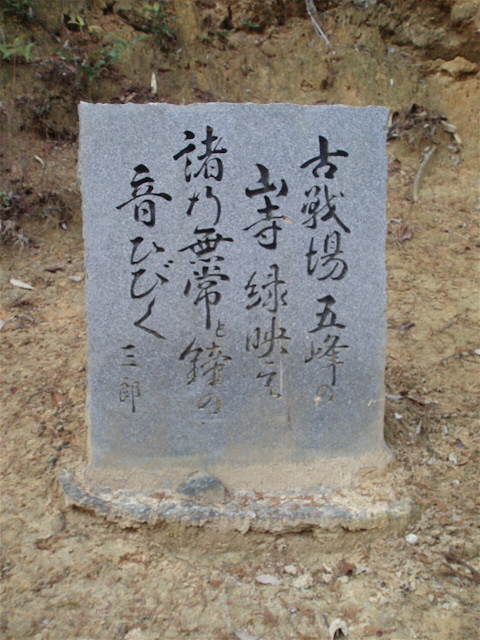 古戦場 五峰の
山寺 緑映え
諸行無常と鐘の
音ひびく
三郎